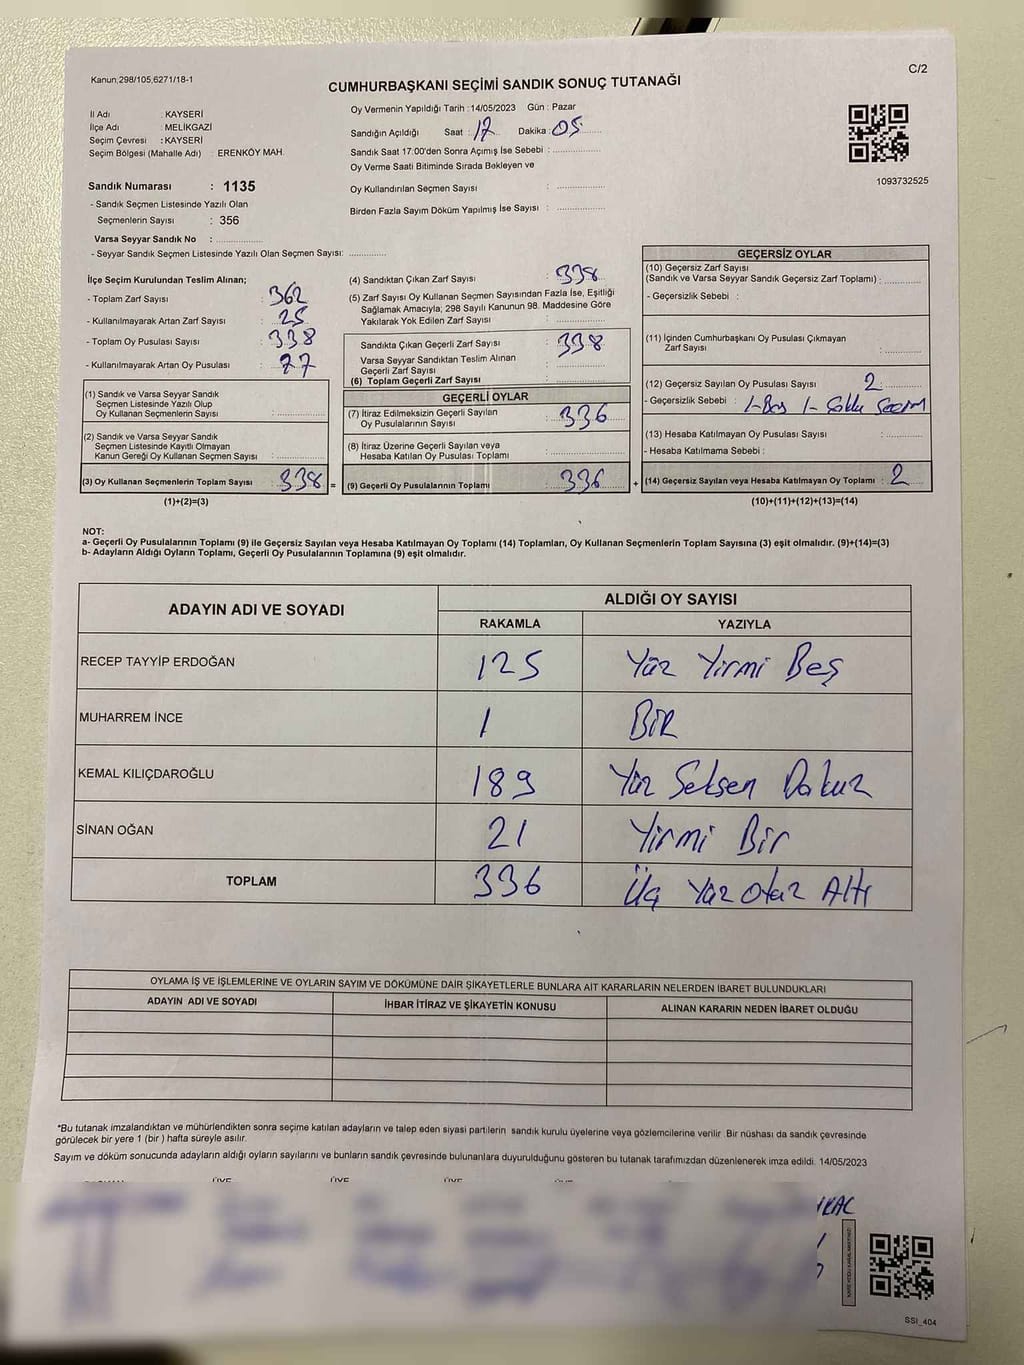 Kanun;298/105,6271/18-1
C/2
CUMHURBAŞKANI SEÇİMİ SANDIK SONUÇ TUTANAĞI
İl Adı : KAYSERİ
İlçe Adı : MELİKGAZİ
Seçim Çevresi : KAYSERİ
Seçim Bölgesi (Mahalle Adı) : ERENKÖY MAH.
Sandık Numarası : 1135
- Sandık Seçmen Listesinde Yazılı Olan
Seçmenlerin Sayısı : 356
Varsa Seyyar Sandık No :
- Seyyar Sandık Seçmen Listesinde Yazılı Olan Seçmen Sayısı:
Oy Vermenin Yapıldığı Tarih :14/05/2023 Gün : Pazar
Sandığın Açıldığı Saat : 17 Dakika : 05
Sandık Saat 17:00'den Sonra Açımış İse Sebebi :
Oy Verme Saati Bitiminde Sırada Bekleyen ve
Oy Kullandırılan Seçmen Sayısı :
Birden Fazla Sayım Döküm Yapılmış İse Sayısı :
1093732525
İlçe Seçim Kurulundan Teslim Alınan;
- Toplam Zarf Sayısı : 362
- Kullanılmayarak Artan Zarf Sayısı : 25
- Toplam Oy Pusulası Sayısı : 338
- Kullanılmayarak Artan Oy Pusulası : 27
(1) Sandık ve Varsa Seyyar Sandık
Seçmen Listesinde Yazılı Olup
Oy Kullanan Seçmenlerin Sayısı :
(2) Sandık ve Varsa Seyyar Sandık
Seçmen Listesinde Kayıtlı Olmayan
Kanun Gereği Oy Kullanan Seçmen Sayısı :
(3) Oy Kullanan Seçmenlerin Toplam Sayısı : 338 =
(1)+(2)=(3)
(4) Sandıktan Çıkan Zarf Sayısı : 338
(5) Zarf Sayısı Oy Kullanan Seçmen Sayısından Fazla İse, Eşitliği
Sağlamak Amacıyla; 298 Sayılı Kanunun 98. Maddesine Göre
Yakılarak Yok Edilen Zarf Sayısı :
Sandıkta Çıkan Geçerli Zarf Sayısı : 338
Varsa Seyyar Sandıktan Teslim Alınan
Geçerli Zarf Sayısı :
(6) Toplam Geçerli Zarf Sayısı :
GEÇERLİ OYLAR
(7) İtiraz Edilmeksizin Geçerli Sayılan
Oy Pusulalarının Sayısı : 336
(8) İtiraz Üzerine Geçerli Sayılan veya
Hesaba Katılan Oy Pusulası Toplamı :
(9) Geçerli Oy Pusulalarının Toplamı : 336 +
GEÇERSİZ OYLAR
(10) Geçersiz Zarf Sayısı
(Sandık ve Varsa Seyyar Sandık Geçersiz Zarf Toplamı) :
- Geçersizlik Sebebi :
(11) İçinden Cumhurbaşkanı Oy Pusulası Çıkmayan
Zarf Sayısı :
(12) Geçersiz Sayılan Oy Pusulası Sayısı : 2
- Geçersizlik Sebebi : 1-Boş 1- Çoklu Seçim
(13) Hesaba Katılmayan Oy Pusulası Sayısı :
- Hesaba Katılmama Sebebi :
(14) Geçersiz Sayılan veya Hesaba Katılmayan Oy Toplamı : 2
(10)+(11)+(12)+(13)=(14)
NOT:
a- Geçerli Oy Pusulalarının Toplamı (9) ile Geçersiz Sayılan veya Hesaba Katılmayan Oy Toplamı (14) Toplamları, Oy Kullanan Seçmenlerin Toplam Sayısına (3) eşit olmalıdır. (9)+(14)=(3)
b- Adayların Aldığı Oyların Toplamı, Geçerli Oy Pusulalarının Toplamına (9) eşit olmalıdır.
ADAYIN ADI VE SOYADI
ALDIĞI OY SAYISI
RAKAMLA YAZIYLA
RECEP TAYYİP ERDOĞAN 125 Yüz Yirmi Beş
MUHARREM İNCE 1 BİR
KEMAL KILIÇDAROĞLU 189 Yüz Seksen Dokuz
SİNAN OĞAN 21 Yirmi Bir
TOPLAM 336 Üç Yüz Otuz Altı
OYLAMA İŞ VE İŞLEMLERİNE VE OYLARIN SAYIM VE DÖKÜMÜNE DAİR ŞİKAYETLERLE BUNLARA AİT KARARLARIN NELERDEN İBARET BULUNDUKLARI
ADAYIN ADI VE SOYADI İHBAR İTİRAZ VE ŞİKAYETİN KONUSU ALINAN KARARIN NEDEN İBARET OLDUĞU
*Bu tutanak imzalandıktan ve mühürlendikten sonra seçime katılan adayların ve talep eden siyasi partilerin sandık kurulu üyelerine veya gözlemcilerine verilir. Bir nüshası da sandık çevresinde
görülecek bir yere 1 (bir ) hafta süreyle asılır.
Sayım ve döküm sonucunda adayların aldığı oyların sayılarını ve bunların sandık çevresinde bulunanlara duyurulduğunu gösteren bu tutanak tarafımızdan düzenlenerek imza edildi. 14/05/2023
ÜYE ÜYE ÜYE
SSI_404